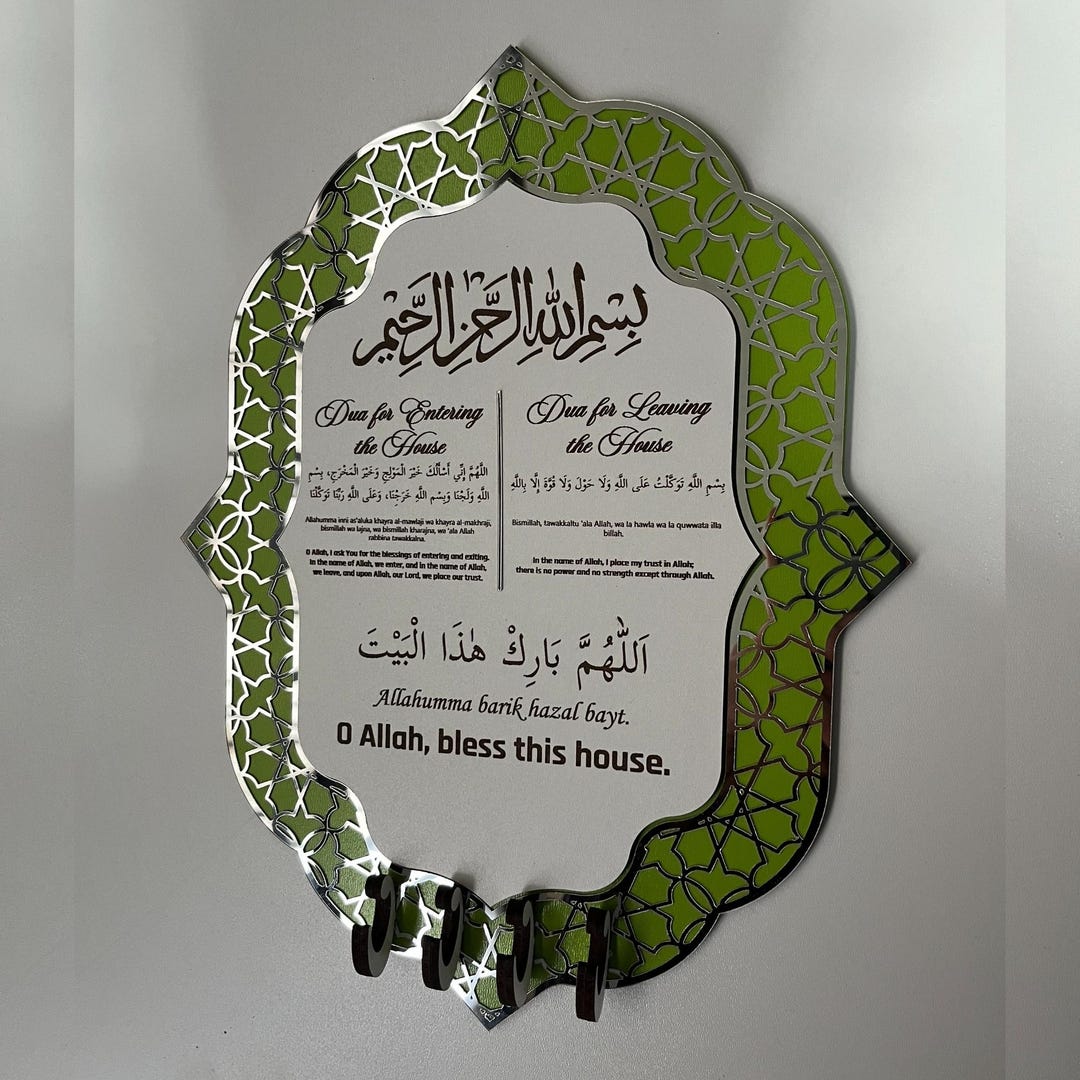 بِسْمِ اللهِ الرَّحْمٰنِ الرَّحِيْمِ
Dua for Entering
the House
اللَّهُمَّ إِنِّي أَسْأَلُكَ خَيْرَ الْمَوْلِجِ وَخَيْرَ الْمَخْرَجِ، بِسْمِ
اللَّهِ وَلَجْنَا وَبِسْمِ اللَّهِ خَرَجْنَا، وَعَلَى اللَّهِ رَبِّنَا تَوَكَّلْنَا
Allahumma inni as'aluka khayra al-mawlaji wa khayra al-makhraji,
bismillah wa lajna, wa bismillah kharajna, wa 'ala Allah
rabbina tawakkalna.
O Allah, I ask You for the blessings of entering and exiting.
In the name of Allah, we enter, and in the name of Allah,
we leave, and upon Allah, our Lord, we place our trust.
Dua for Leaving
the House
بِسْمِ اللَّهِ تَوَكَّلْتُ عَلَى اللَّهِ وَلَا حَوْلَ وَلَا قُوَّةَ إِلَّا بِاللَّهِ
Bismillah, tawakkaltu 'ala Allah, wa la hawla wa la quwwata illa
billah.
In the name of Allah, I place my trust in Allah;
there is no power and no strength except through Allah.
اَللّٰهُمَّ بَارِكْ هٰذَا الْبَيْتَ
Allahumma barik hazal bayt.
O Allah, bless this house.